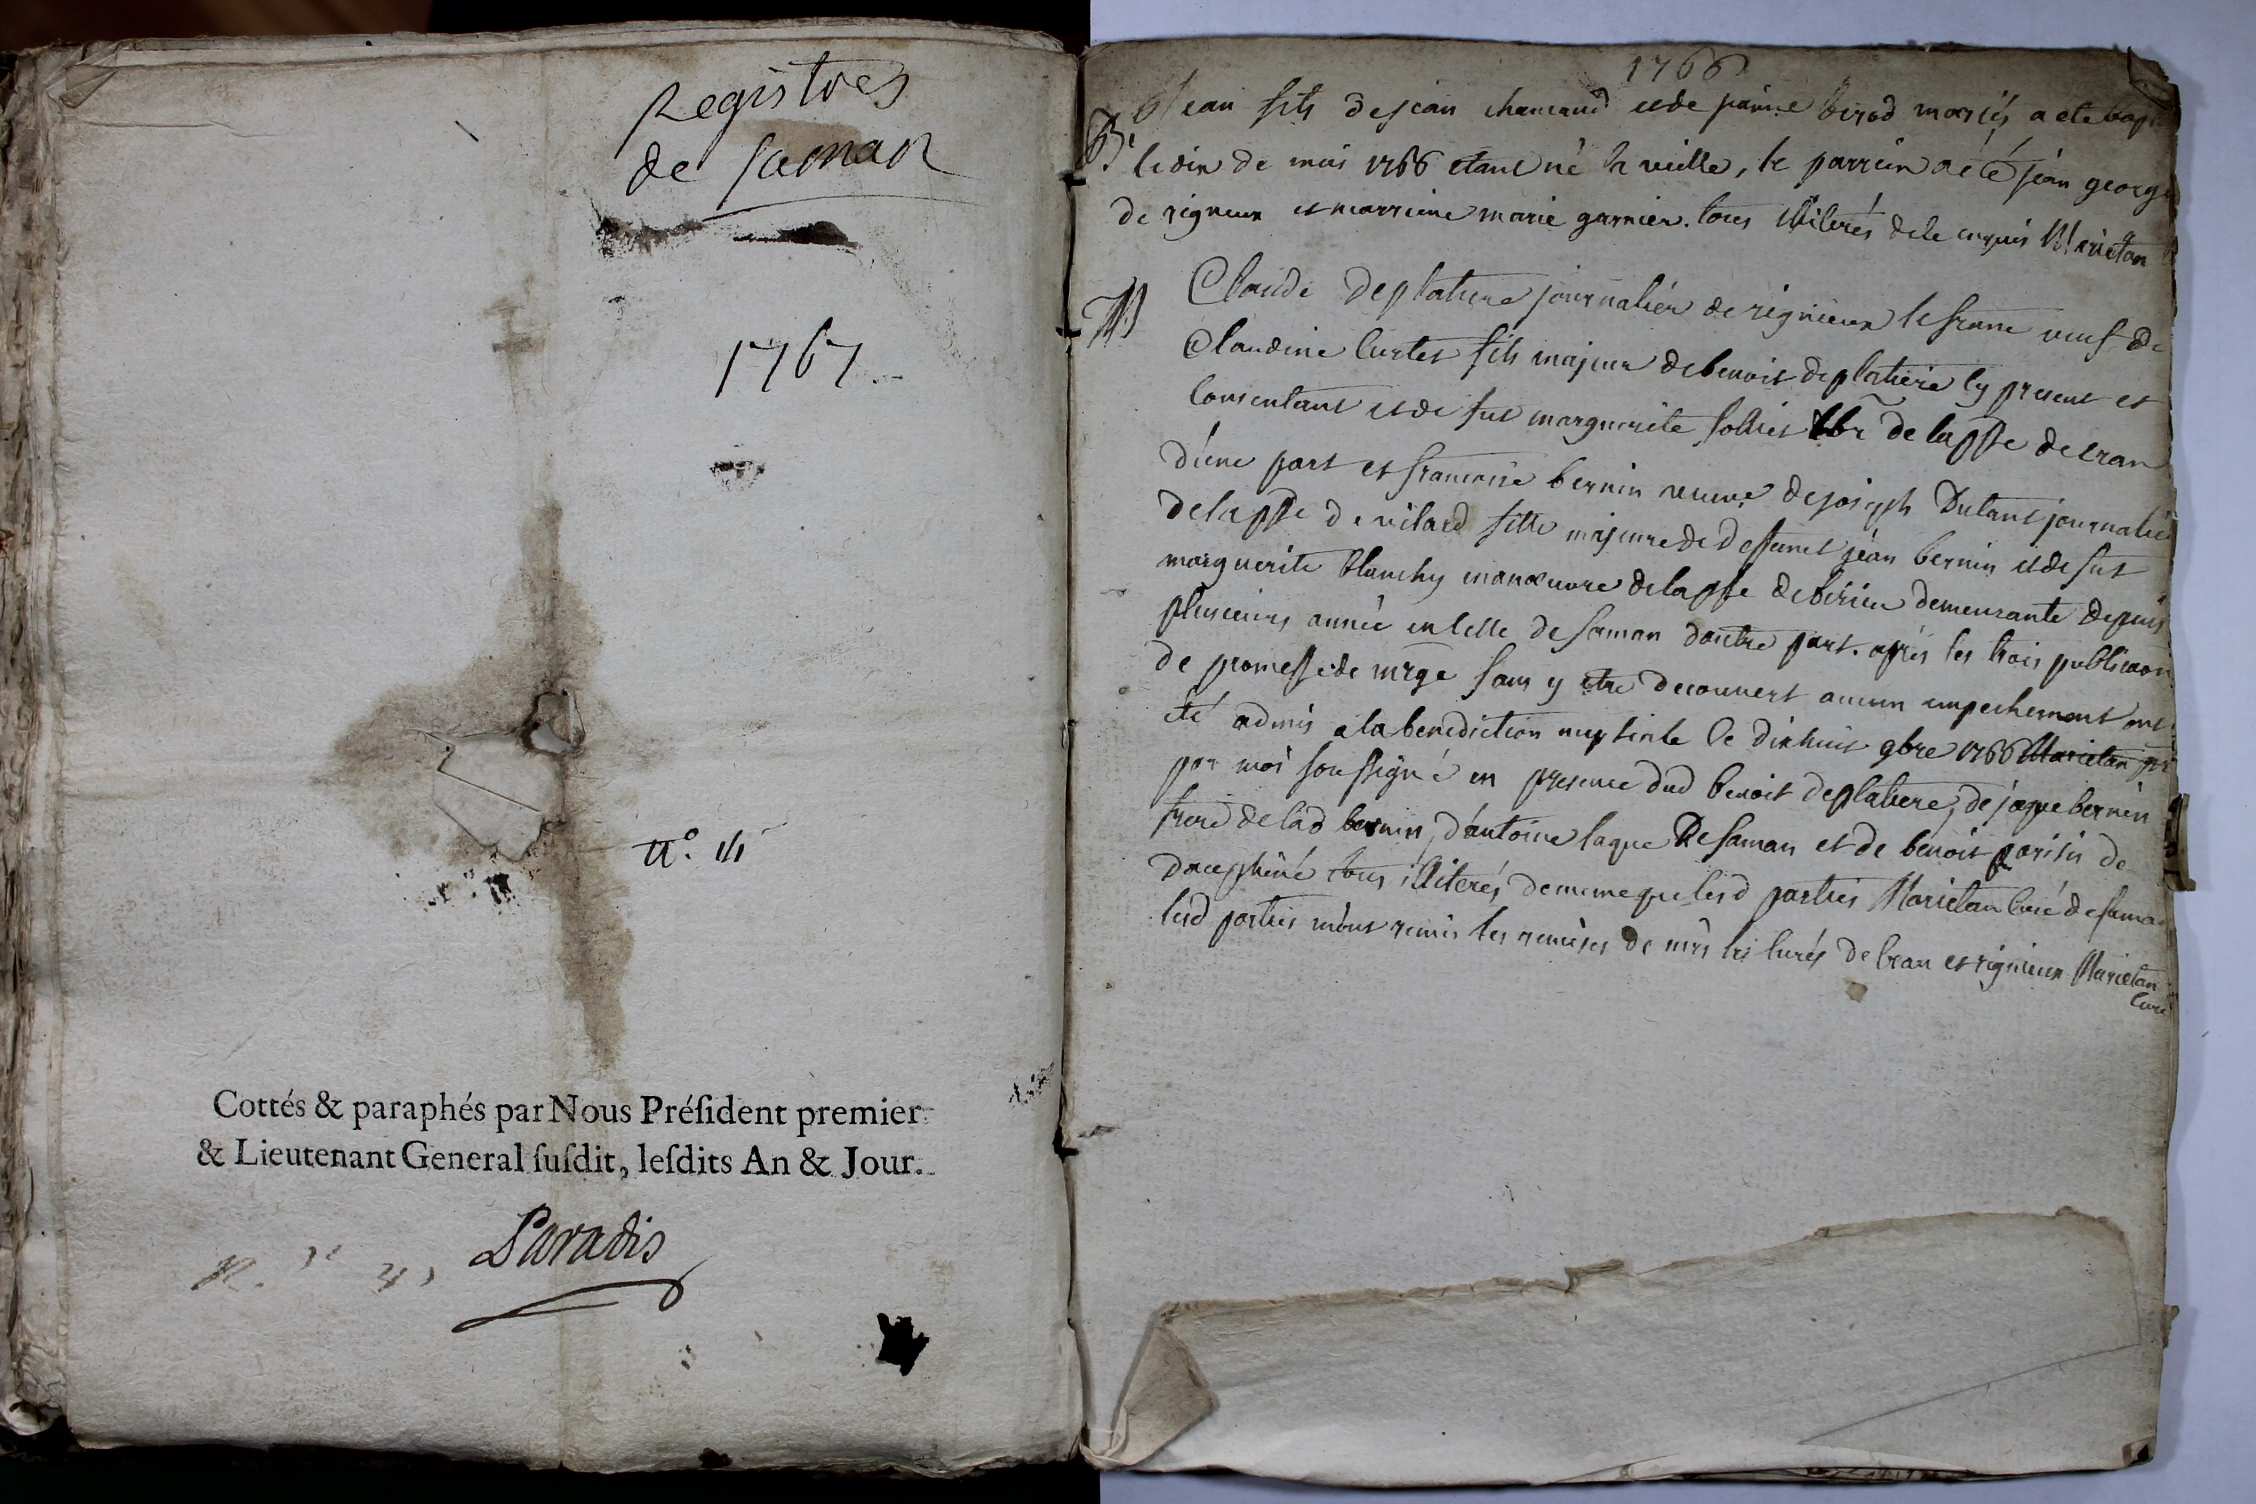 Registres
de saman
1767
n°. 14
Cottés & paraphés par Nous Préſident premier
& Lieutenant General ſuſdit, leſdits An & Jour.
Paradis
1766
B Jean fils de jean chamaud et de janne berod mariés a eté bap
le dix de mai 1766 etant né la veille, le parrein a été jean george
de rigneux et marreine marie garnier. tous illiterés de ce enquis Marietan
M Claude deplatiere journalier de rigneux le franc veuf de
Claudine Curtet fils majeur de benoit deplatiere cy present et
consentant et de fue marguerite de la psse de cran
d'une part et francoise bernin veuve de joseph Dutant journalier
de la psse de vilard fille majeure de deffunct jean bernin et de fue
marguerite blanchy manœuvre de la psse de birieu demeurante depuis
plusieurs année en celle de saman d'autre part. après les trois publicaon
de promesse de mrge sans y etre decouvert aucun empechement ont
été admis a la benediction nuptiale le dixhuit 9bre 1766 Marietan
par moi soussigné en presence dud benoit deplatiere, de jaque bernin
frere de lad bernin, d'antoine laque de saman et de benoit parisis de
tous illiterés de meme que lesd parties Marietan curé de saman
lesd parties m'ont remis les remises de mrs les curés de cran et rigneux Marietan
curé